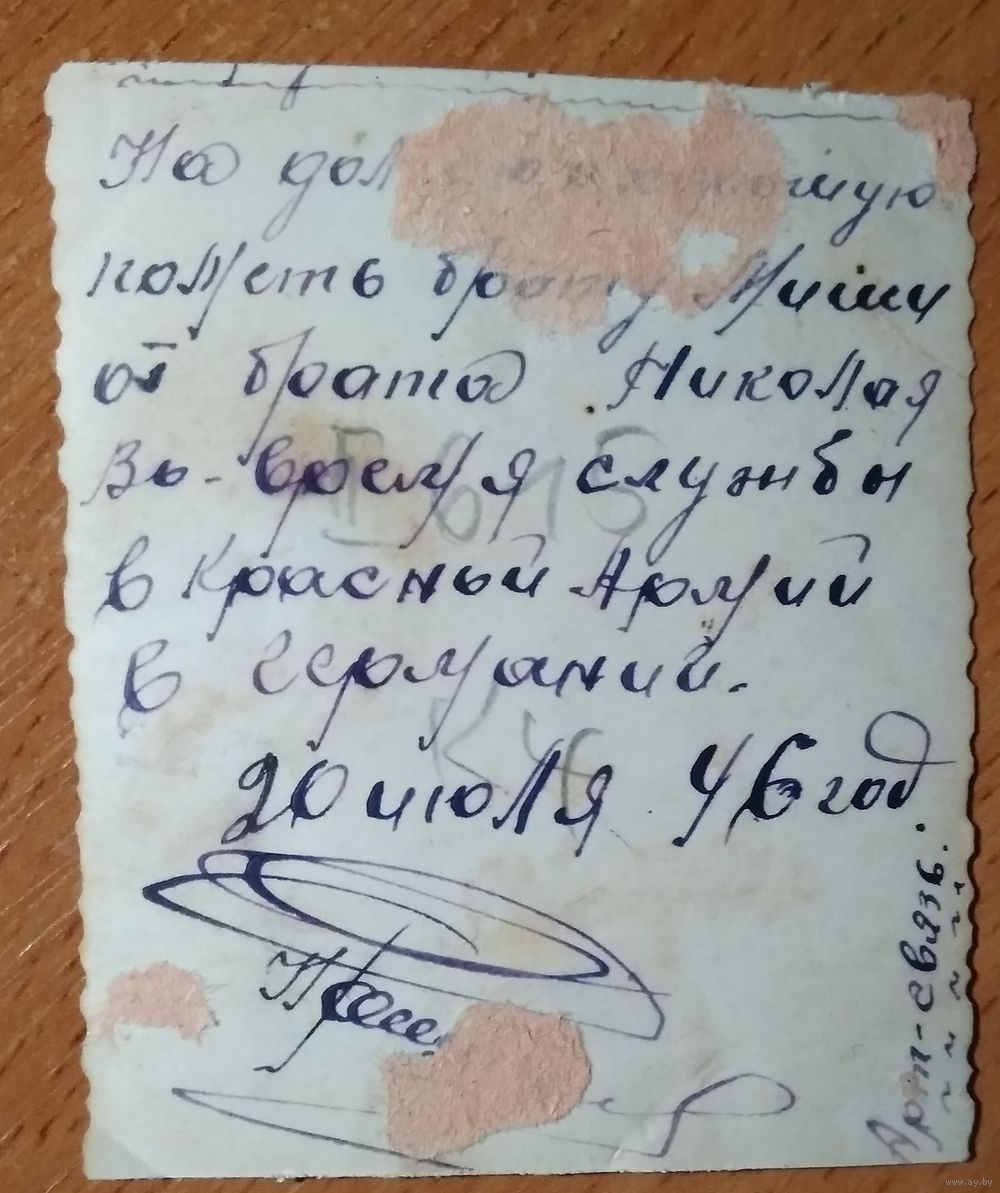 На дол
пометь брату Миши
от брата Николая
Во-время службы
в Красный Армий
в Германий.
20 июля 46 год
Арт-связь.
www.ay.by